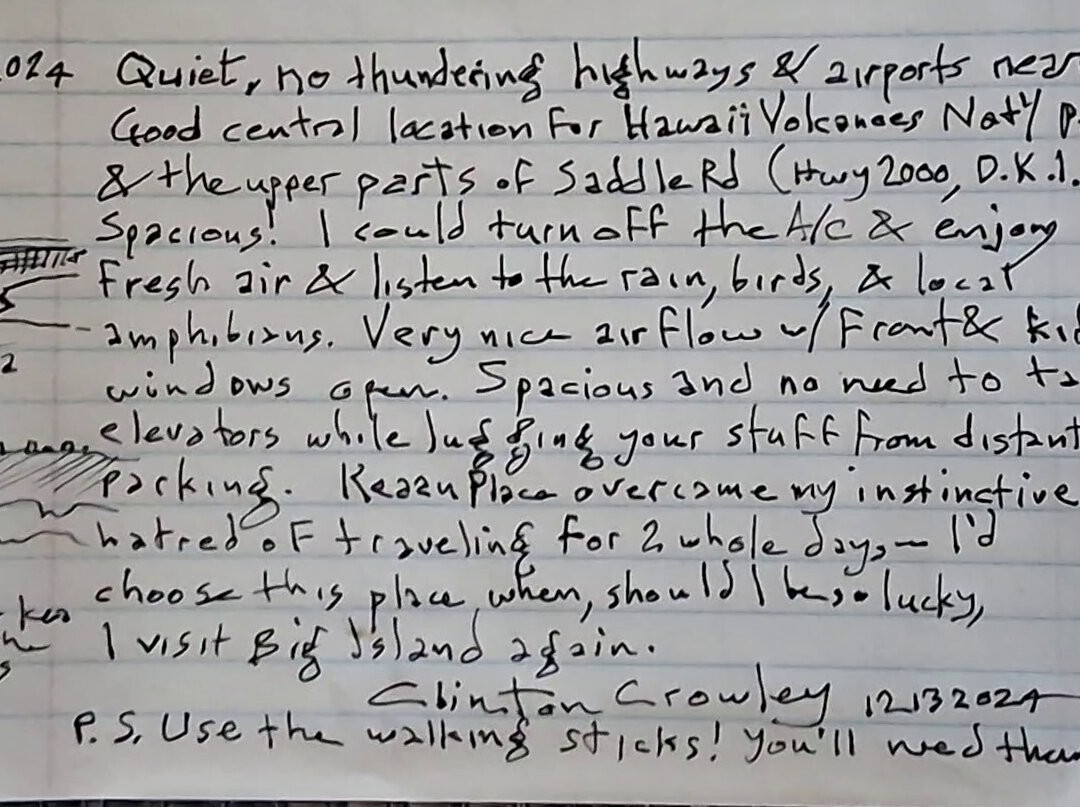 024 Quiet, no thundering highways & airports near
Good central location for Hawaii Volcanoes Nat'l P
& the upper parts of Saddle Rd (Hwy 2000, D.K.I.
Spacious! I could turn off the A/C & enjoy
fresh air & listen to the rain, birds, & local
amphibians. Very nice airflow w/ Front & kid
2 windows open. Spacious and no need to ta
elevators while lugging your stuff from distant
parking. Place overcame my instinctive
hatred of traveling for 2 whole days — I'd
choose this place when, should I be so lucky,
I visit Big Island again.
Clinton Crowley 12132024
P.S. Use the walking sticks! You'll need them